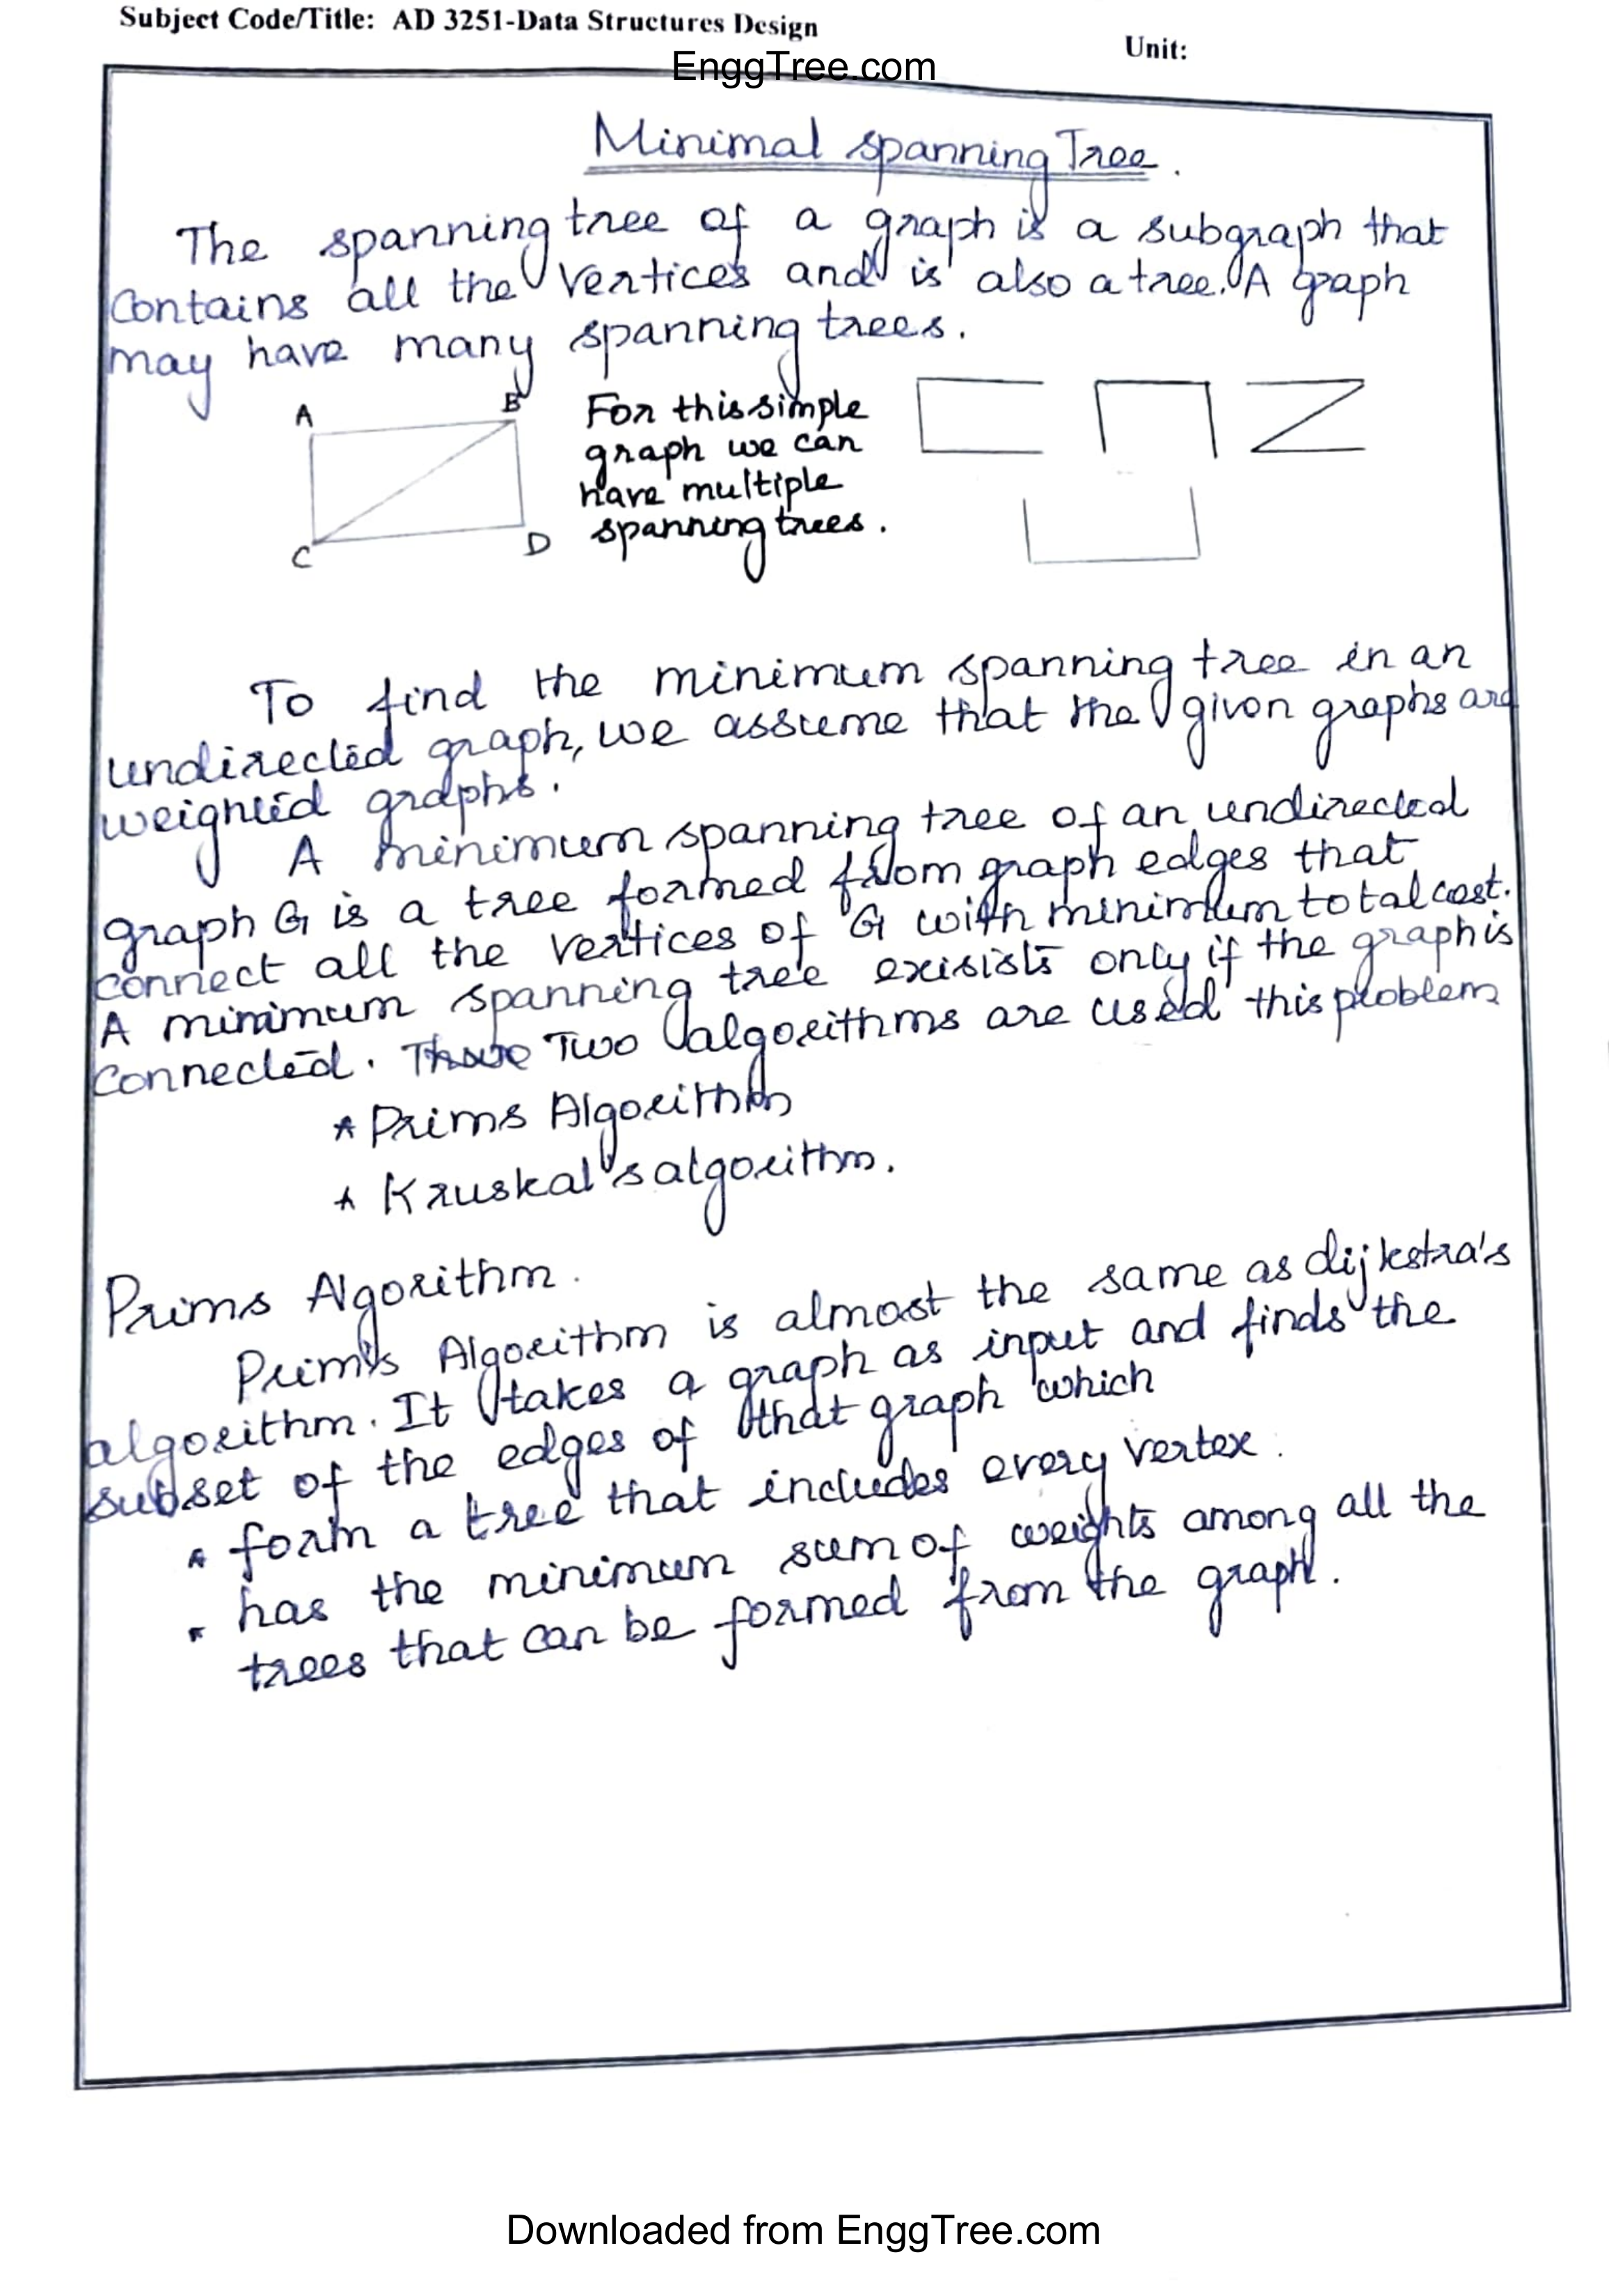 Subject Code/Title: AD 3251-Data Structures Design
Unit:
EnggTree.com
Minimal spanning Tree.
The spanning tree of a graph is a subgraph that
contains all the vertices and is also a tree. A graph
may have many spanning trees.
A
B
C
D
For this simple
graph we can
have multiple
spanning trees.
To find the minimum spanning tree in an
undirected graph, we assume that the given graphs are
weighted graphs.
A minimum spanning tree of an undirected
graph G is a tree formed from graph edges that
connect all the vertices of G with minimum total cost.
A minimum spanning tree exisists only if the graph is
connected. Two algorithms are used this problem
* Prims Algorithm
* Kruskal's algorithm.
Prims Algorithm.
Prim's Algorithm is almost the same as dijkstra's
algorithm. It takes a graph as input and finds the
subset of the edges of that graph which
* form a tree that includes every vertex.
* has the minimum sum of weights among all the
trees that can be formed from the graph.
Downloaded from EnggTree.com